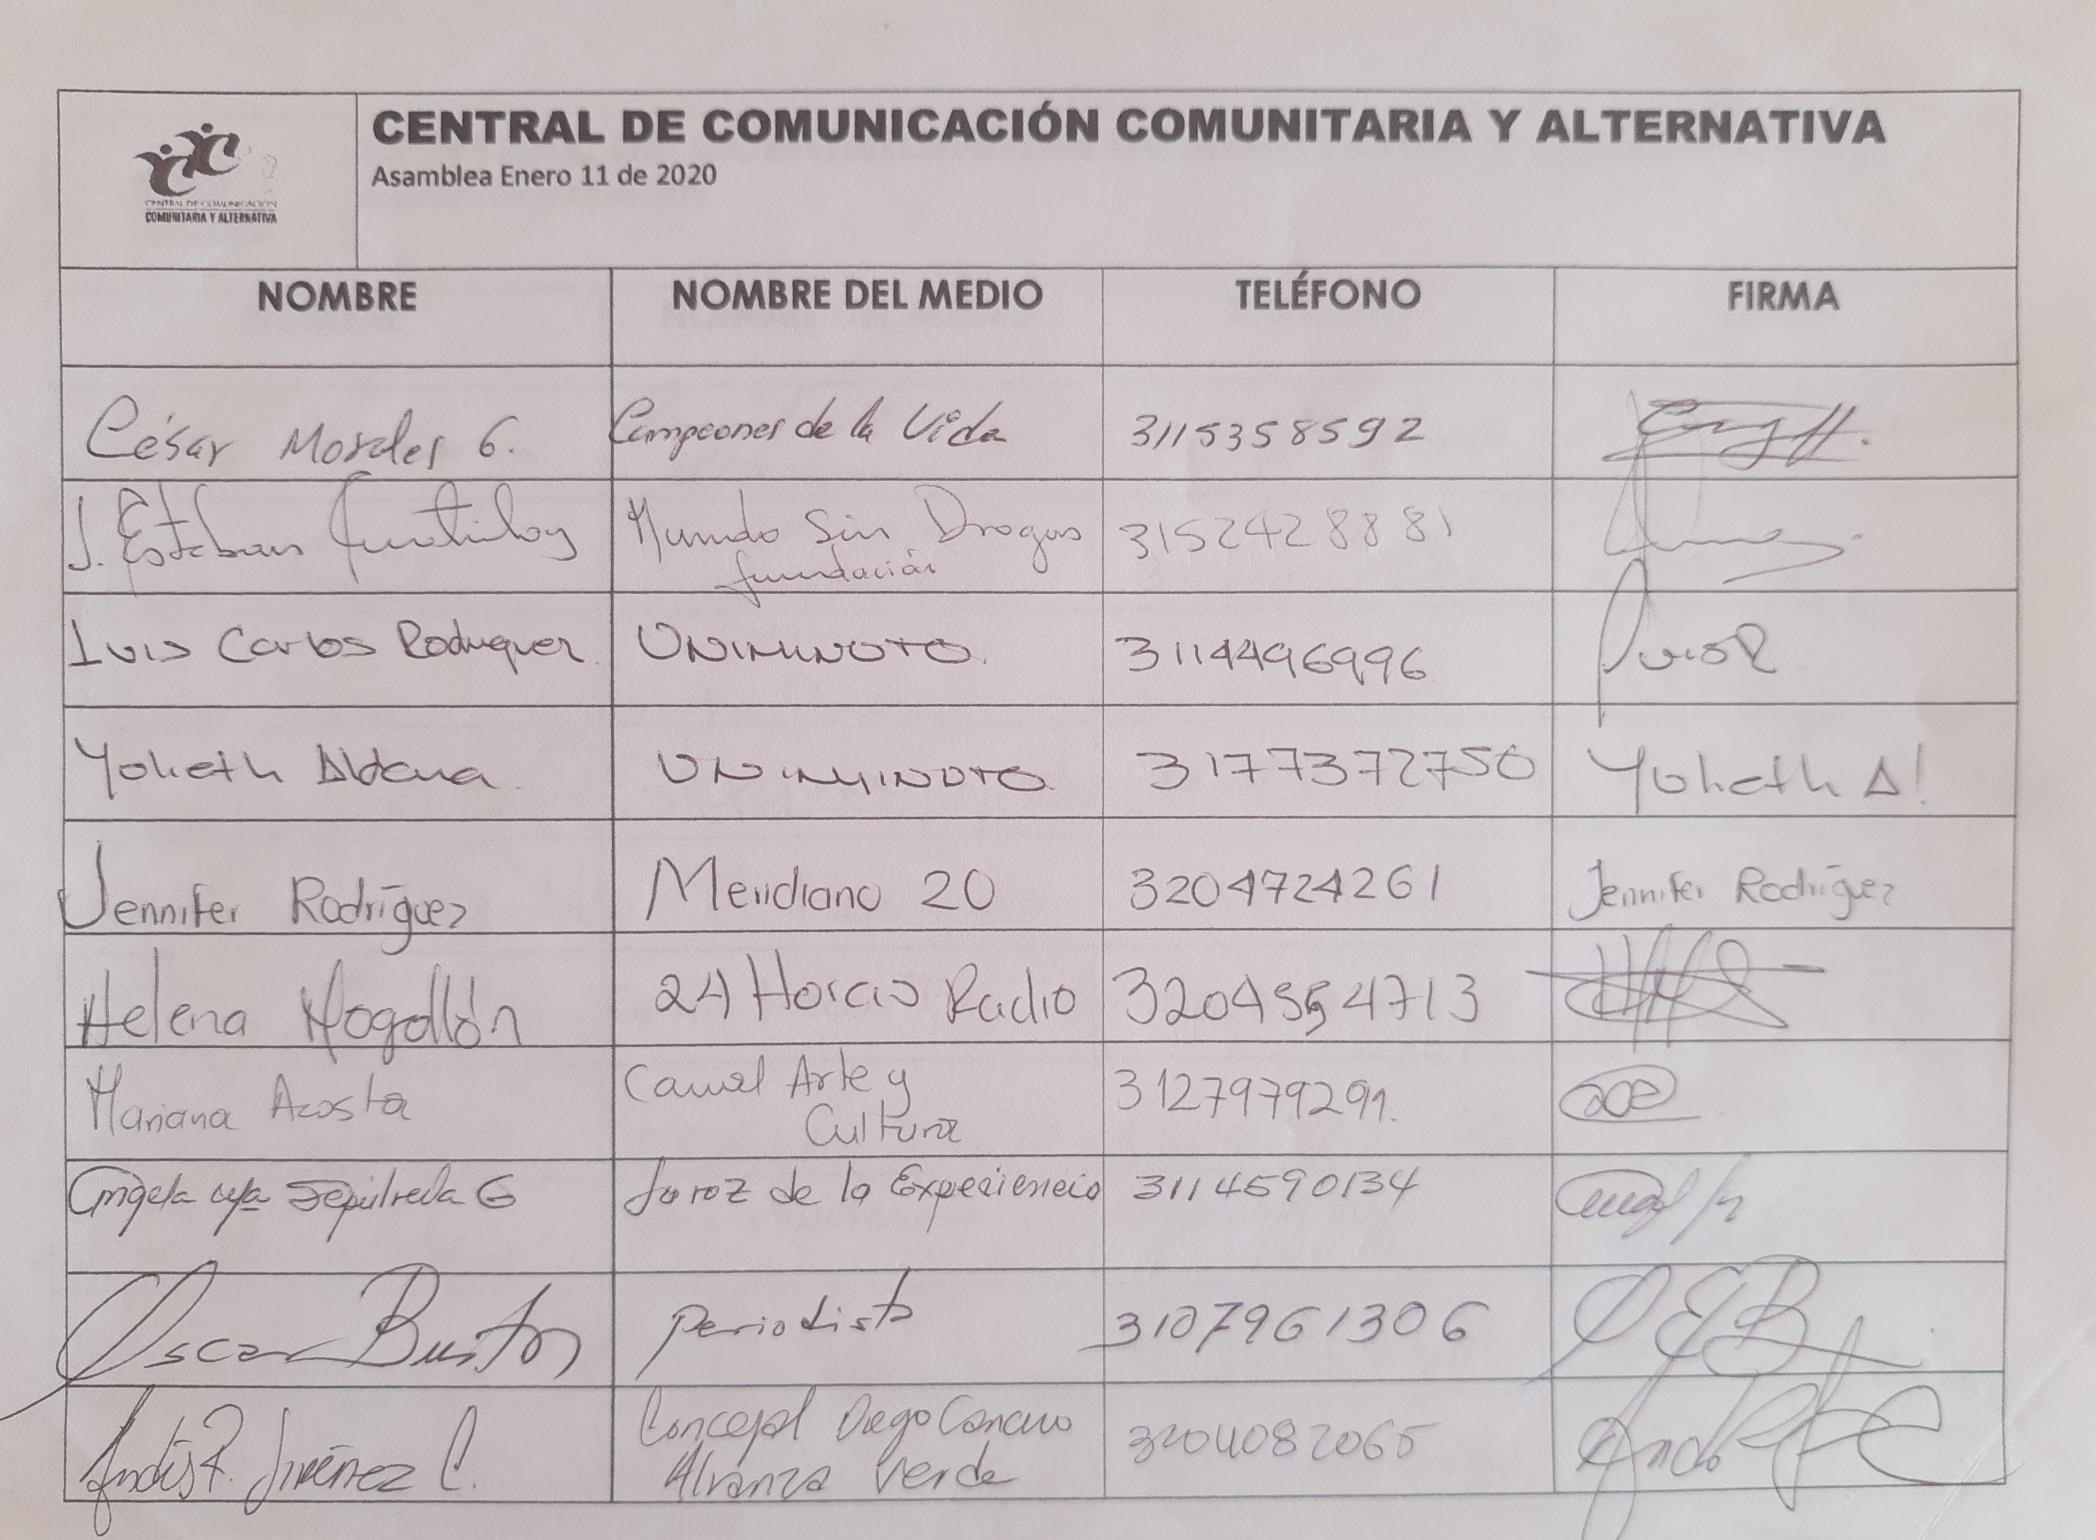 CENTRAL DE COMUNICACIÓN COMUNITARIA Y ALTERNATIVA
Asamblea Enero 11 de 2020
CENTRAL DE COMUNICACIÓN
COMUNITARIA Y ALTERNATIVA
NOMBRE NOMBRE DEL MEDIO TELÉFONO FIRMA
César Morales G. Campeones de la Vida 3115358592
J. Esteban Mundo Sin Drogas 3152428881
fundación
Luis Carlos Rodriguez UNIMINUTO 3114496996 Luis R
Yolieth Aldana UNIMINUTO 3177372750 Yolieth A!
Jennifer Rodríguez Meridiano 20 3204724261 Jennifer Rodríguez
Helena Mogollón 24 Horas Radio 3204554713
Mariana Acosta Canal Arte y 3127979291.
Cultura
Angela Ma Sepúlveda G La voz de la Experiencia 3114590134
Oscar Bustos periodista 3107961306 OEB
Jiménez C. Concejal Diego Cancino 3204082065
Alianza Verde